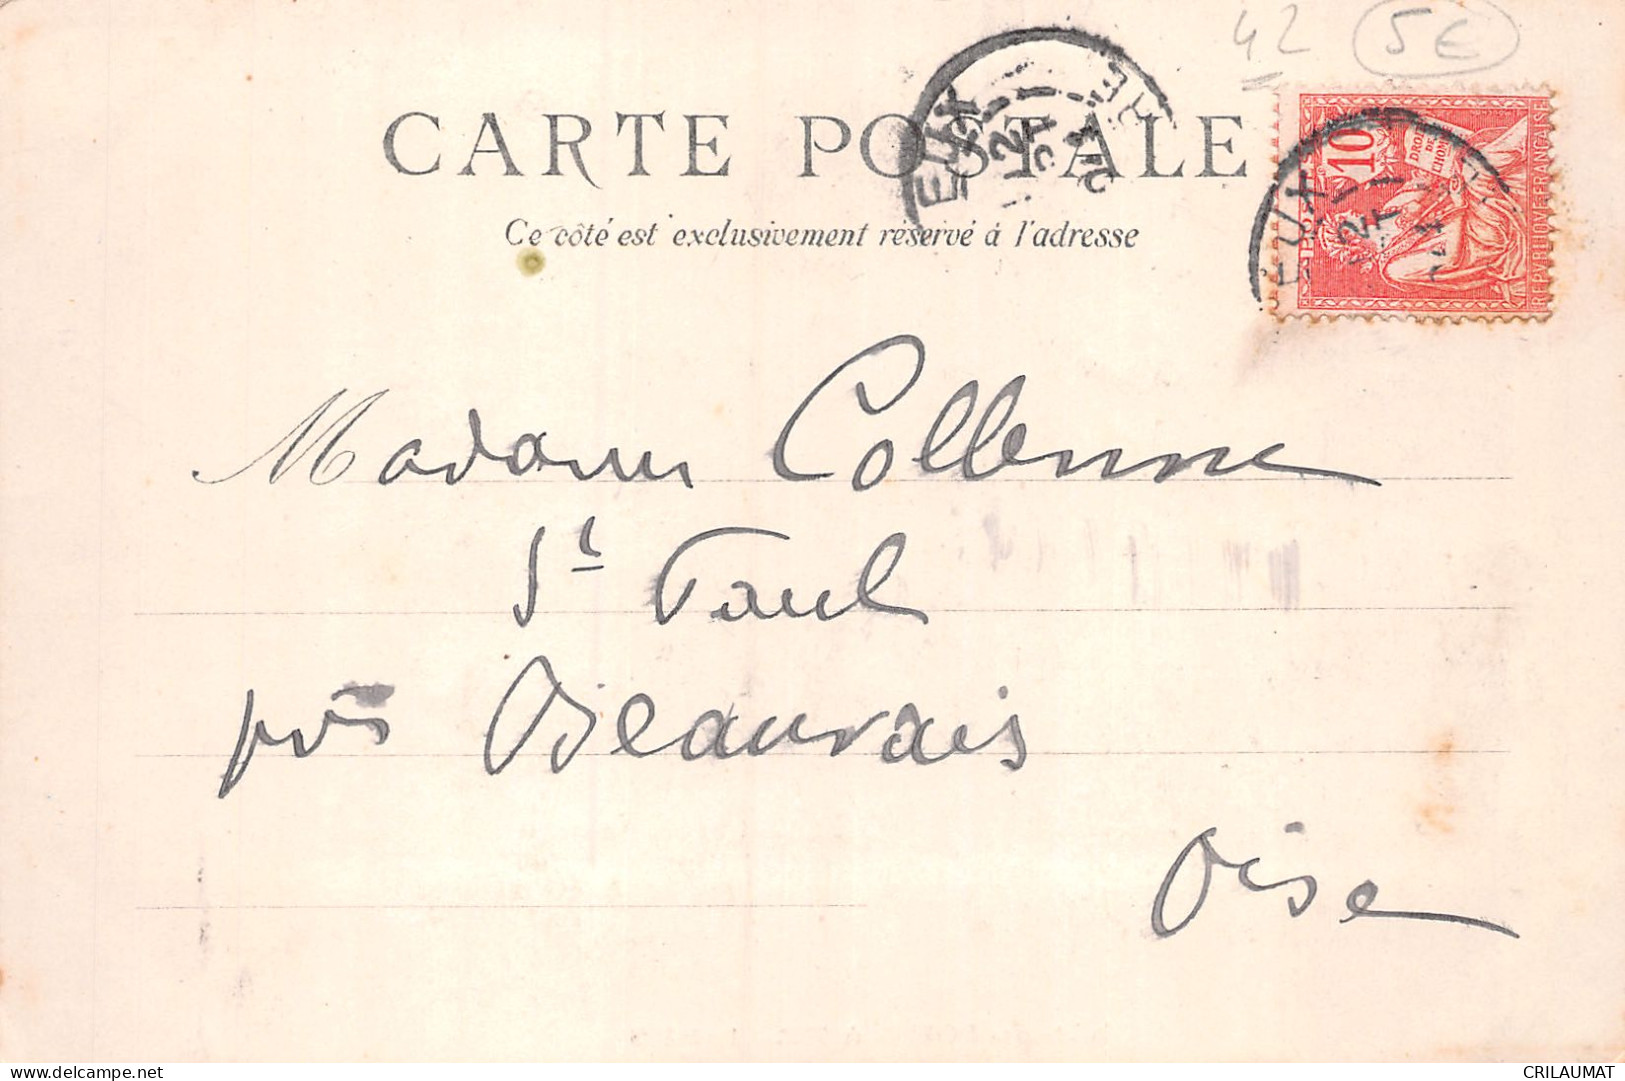 42 5€
CARTE POSTALE
Ce côté est exclusivement réservé à l'adresse
EUX
10
DROITS
DE
L'HOMME
REPUBLIQUE FRANÇAISE
Madame Collenne
St Paul
près Beauvais
Oise
delcampe.net
CRILAUMAT